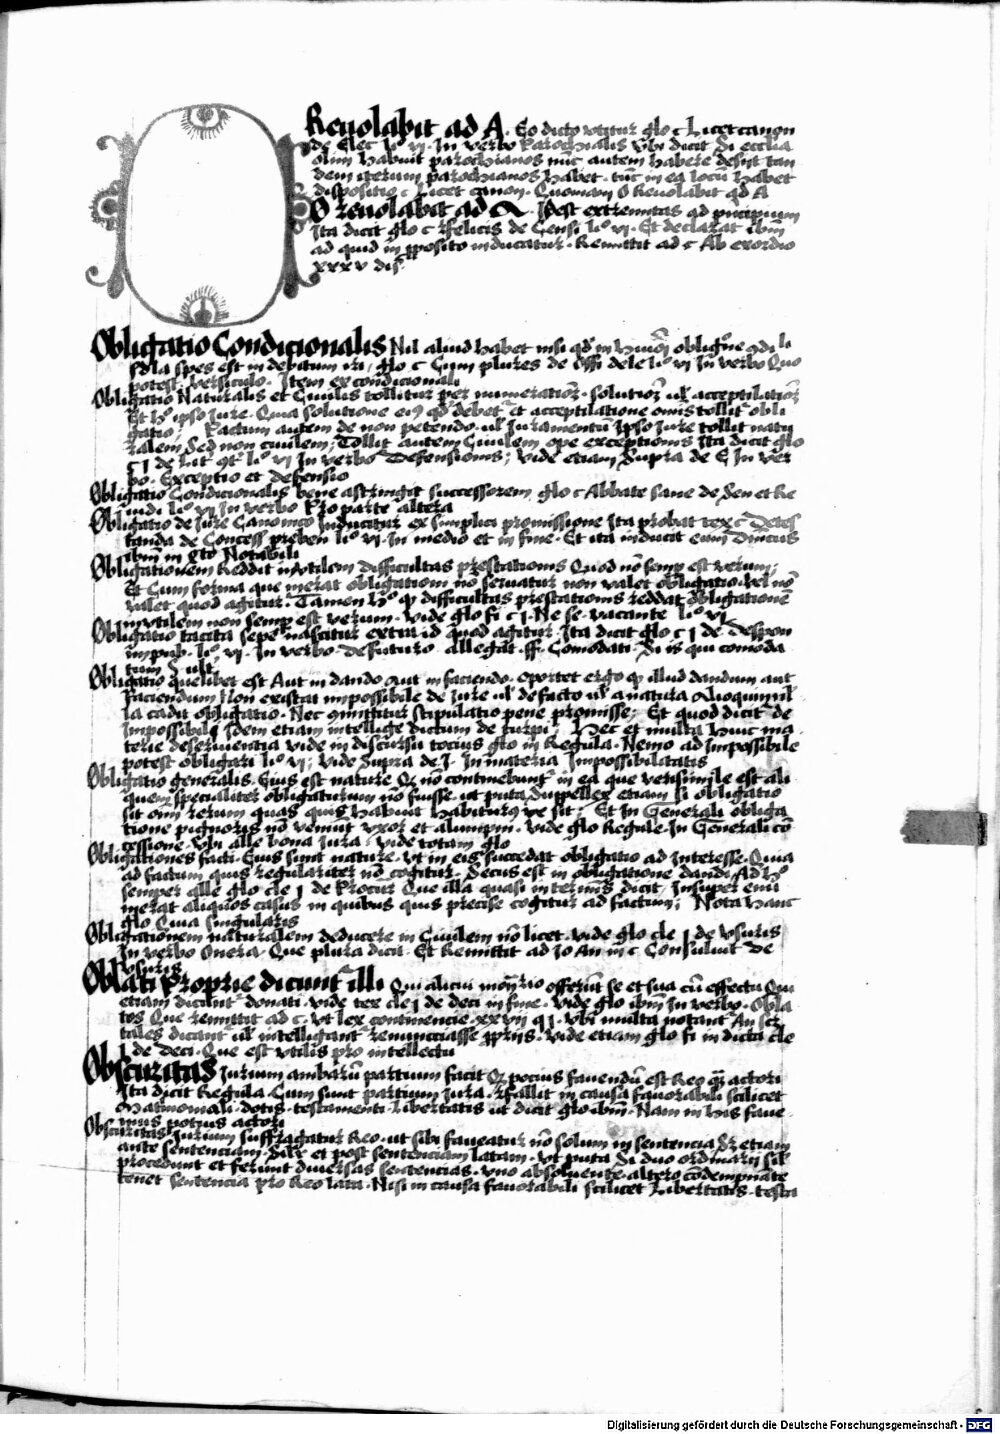 O Reuolabit ad A. Eo dicto vtitur glo c Licet canon
de Elec li° vi. In verbo Parochialis vbi dicit Si ecclia
olim habuit parochianos nūc autem habere desijt tan
dem iterum parochianos habet. tūc in ea locū habet
dispositio c Licet canon. Quoniam O Reuolabit qd A
O reuolabit ad A. Idest extremitas ad principium
Ita dicit glo c felicis de Censi li° vi. Et declarat ibm̄
ad quid in pposito inducatur. Remittit ad c Ab exordio
xxxv dis.
Obligatio Condicionalis Nil aliud habet nisi qd in
sola spes est in debitum iri, glo c Cum plures de offi dele li° vi In verbo Quo
potest. versiculo. Item ex condicionali
Obligatio Naturalis et Ciuilis tollitur per numeratiōz. solutiōz ul' acceptilatiōz
Et h° ipso Iure. Qua solutione eiꝰ qd debet et acceptilatione omis tollit obli
gatio; Pactum autem de non petendo. ul' Iuramentū Ipso Iure tollit natu
ralem Sed non ciuilem; Tollit autem Ciuilem ope exceptionis Ita dicit glo
c j de li° vi In verbo Defensionis; vide etiam Supra de E In ver
bo. Exceptio et defensio
Obligatio Condicionalis bene astringit successorem glo c Abbate sane de Sen et Re
iudi li° vi In verbo Pro parte altera
Obligatio de Iure Canonico Inducitur ex simplici promissione Ita probat tex c Detes
tanda de Concess preben li° vi. In medio et in fine. Et ita inducit eum Dnicus
ibm̄ in qto Notabili
Obligationem Reddit inutilem difficultas prestationis Quod nō semp est verum;
Et Cum forma que inerat obligationi nō seruatur non valet obligatio. vel nō
valet quod agitur. Tamen h° qd difficultas prestationis reddat obligationē
inutilem non semp est verum. vide glo fi c j. Ne se. vacante li° vi
Obligatio tacita sepe nascitur extra id quod agitur. Ita dicit glo c j de Despon
impub. li° vi. In verbo De futuro allegāt ff. Comodati. Si is qui comoda
tum § ult
Obligatio quelibet est Aut in dando Aut in faciendo. oportet ergo qd illud dandum aut
faciendum Non existat impossibile de Iure ul' de facto ul' a natura Alioquin ul
la cadit obligatio. Nec committitur stipulatio pene promisse; Et quod dicit de
Impossibili Idem etiam intellige dictum de turpi; Hec et multa huic ma
terie deseruientia vide in discursu tocius glo in Regula. Nemo ad Impossibile
potest obligari li° vi; vide Supra de I. In materia Impossibilitatis
Obligatio generalis. Eius est nature Qd nō continebunt in ea que verisimile est ali
quem specialiter obligaturum nō fuisse. ut puta Suppellex etiam si obligatio
sit om̄ rerum quas quis habuit habiturꝰ ve sit; Et In Generali obliga
tione pignoris nō veniūt vxor et alumpni. vide glo Regule. In Generali cō
cessione. vbi alle bona iura. vide totam glo
Obligationes facti. Eius sunt nature. vt in eis succedat obligatio ad Interesse. Quia
ad factum quis regulariter nō cogitur. Secus est in obligatione dandi. Ad h°
semper alle glo cle j de Procur Que illa quasi in terminis dicit, Insuper enu
merat aliquos casus in quibus quis precise cogitur ad factum; Nota hanc
glo Quia singularis
Obligationem naturalem deducere in Ciuilem nō licet. vide glo cle j de vsuris
In verbo Onera, Que plura dicit. Et Remittit ad Jo An in c Consuluit De
vsuris
Oblati Proprie dicunt illi Qui alicui mon̄rio offerūt se et sua cū effectu Qui
etiam dicunt donati. vide tex cle j de deci in fine. vide glo ibm̄ In verbo. Obla
tos Que remittit ad c. vt lex continencie. xxvij q j. vbi multa notant An
tales dicant ul' intelligant renunciasse pprijs. vide etiam glo fi in dicta cle
j de deci. Que est vtilis pro intellectu
Obscuritas Iurium ambarū partium facit Qd pocius fauendū est Reo qz actori
Ita dicit Regula. Cum sunt partium iura. fallit in causa fauorabili scilicet
Matrimoniali. dotis. testamenti. Libertatis ut dicit glo ibm̄. Nam in his faue
mus potius actori
Obscuritas Iurium suffragatur Reo. ut sibi faueatur nō solum in sentencia Sz etiam
ante sentenciam. Silr et post sentenciam latam. vt puta Si duo ordinarij sil'
procedunt et ferunt diuersas sentencias. vno absoluente. altero cōdempnāte
tenet sentencia pro Reo lata. Nisi in causa fauorabili scilicet Libertatis. testa
Digitalisierung gefördert durch die Deutsche Forschungsgemeinschaft - DFG